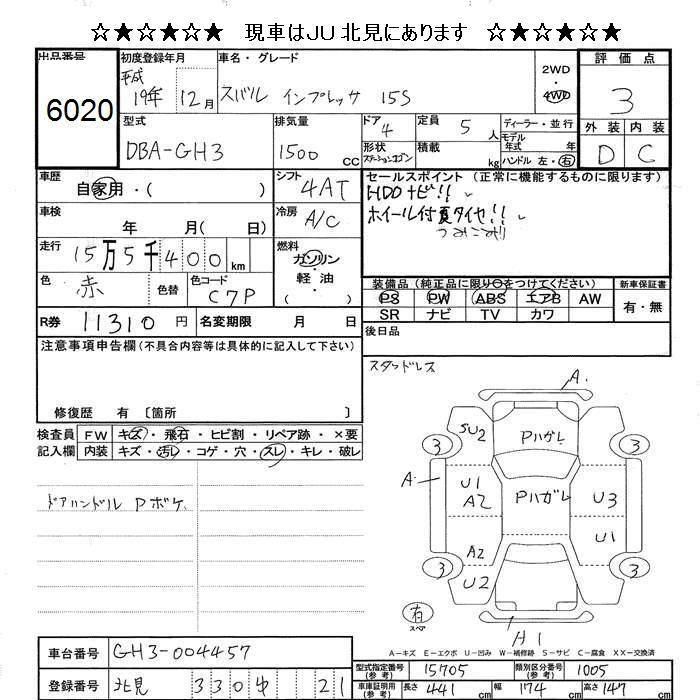 ☆★☆★☆★ 現車はJU北見にあります ☆★☆★☆★
出品番号
6020
初度登録年月
平成
19年 12月
車名・グレード
スバル インプレッサ 15S
2WD
・
4WD
評価点
3
外装 内装
D C
型式
DBA-GH3
排気量
1500 cc
ドア
4
形状
ステーションワゴン
定員
5 人
積載
kg
ディーラー・並行
モデル
年式 年
ハンドル 左・右
車歴
自家用・( )
シフト
4AT
車検
年 月( 日)
冷房
A/C
走行
15万5千400km
燃料
ガソリン
軽油
・( )
色
赤
色替
色コード
C7P
R券 11310円
名変期限 月 日
セールスポイント (正常に機能するものに限ります)
HDDナビ!!
ホイール付夏タイヤ!!
つみこみ別
装備品(純正品に限り○をつけてください)
PS PW ABS エアB AW
SR ナビ TV カワ
新車保証書
有・無
後日品
注意事項申告欄(不具合内容等は具体的に記入して下さい)
修復歴 有 〔箇所 〕
検査員
記入欄
FW キズ・飛石・ヒビ割・リペア跡・×要
内装 キズ・汚れ・コゲ・穴・スレ・キレ・破レ
ドアハンドル Pボケ.
スタッドレス
A.
SU2
Pハガレ
3
3
A.
U1
A2
Pハガレ
U3
U1
A2
U2
3
3
有
スペア
A1
A-キズ E-エクボ U-凹み W-補修跡 S-サビ C-腐食 XX-交換済
車台番号 GH3-004457
登録番号 北見 330 ゆ 21
型式指定番号
(参考)
15705
類別区分番号
(参考)
1005
車庫証明用
(参考)
長さ 441 cm
幅 174 cm
高さ 147 cm